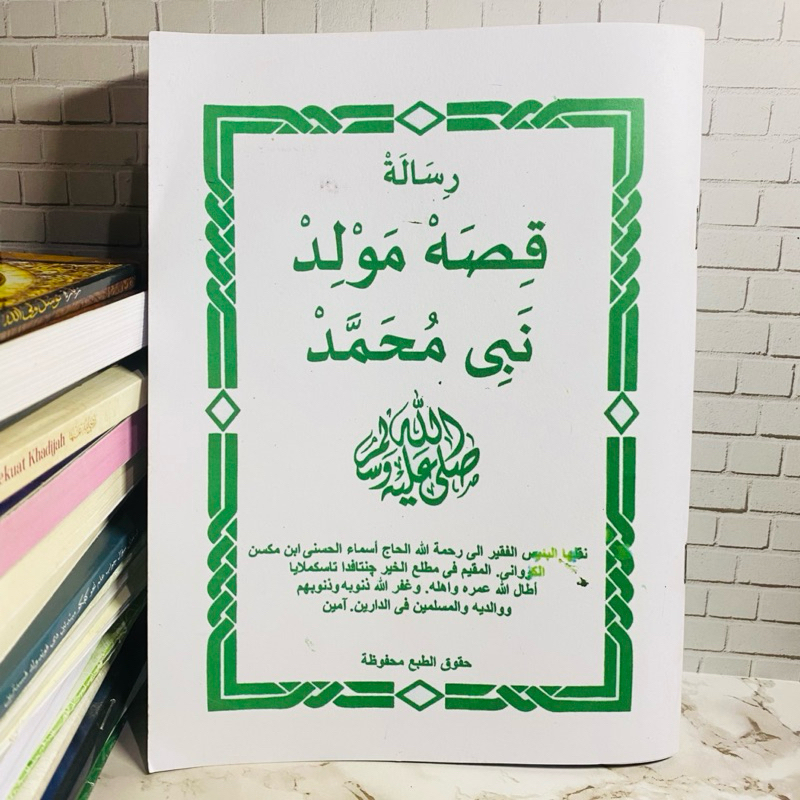 رِسَالَةْ
قِصَهْ مَوْلِدْ
نَبِى مُحَمَّدْ
صلى الله عليه وسلم
نقلها الفقير الى رحمة الله الحاج أسماء الحسنى ابن مكسن
الكرواني. المقيم فى مطلع الخير چنتافدا تاسكملايا
أطال الله عمره واهله. وغفر الله ذنوبه وذنوبهم
ووالديه والمسلمين فى الدارين. آمين
حقوق الطبع محفوظة
ekuat Khadijah